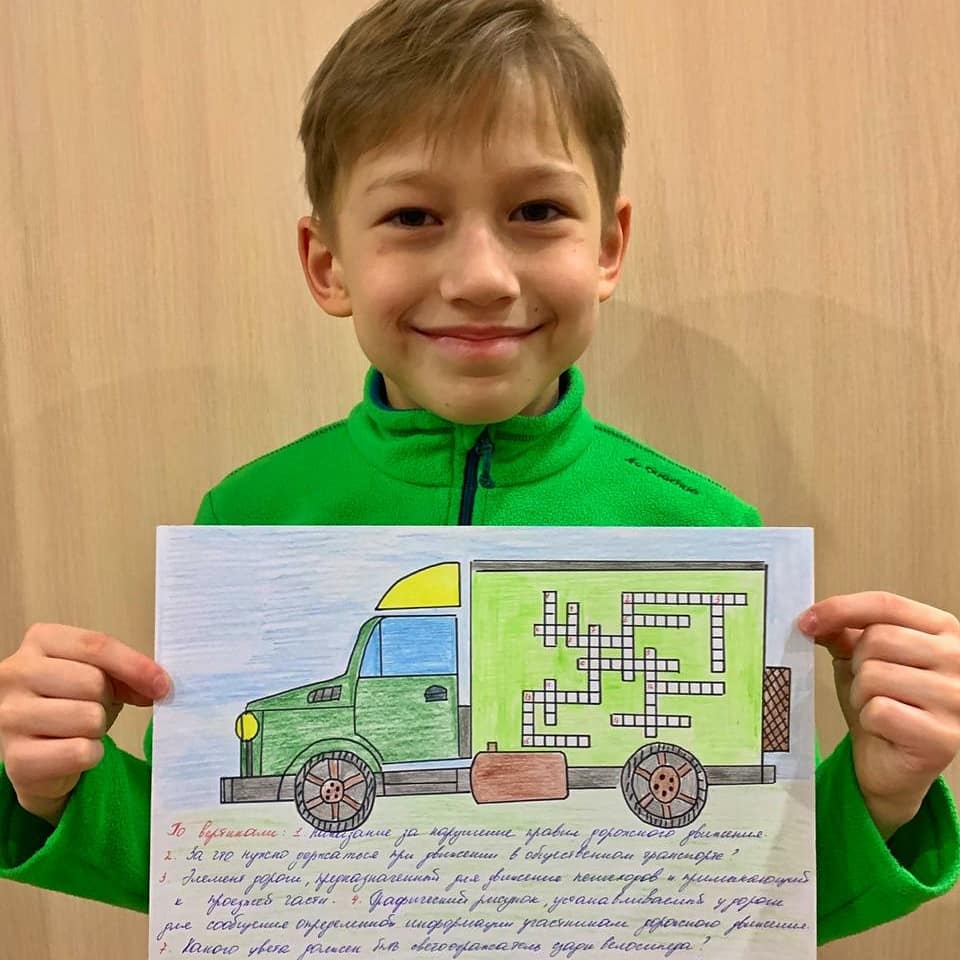 По вертикали: 1. Наказание за нарушение правил дорожного движения.
2. За что нужно держаться при движении в общественном транспорте?
3. Элемент дороги, предназначенный для движения пешеходов и примыкающий
к проезжей части. 4. Графический рисунок, устанавливаемый у дороги
для сообщения определенной информации участникам дорожного движения.
7. Какого цвета должен быть светоотражатель сзади велосипеда?